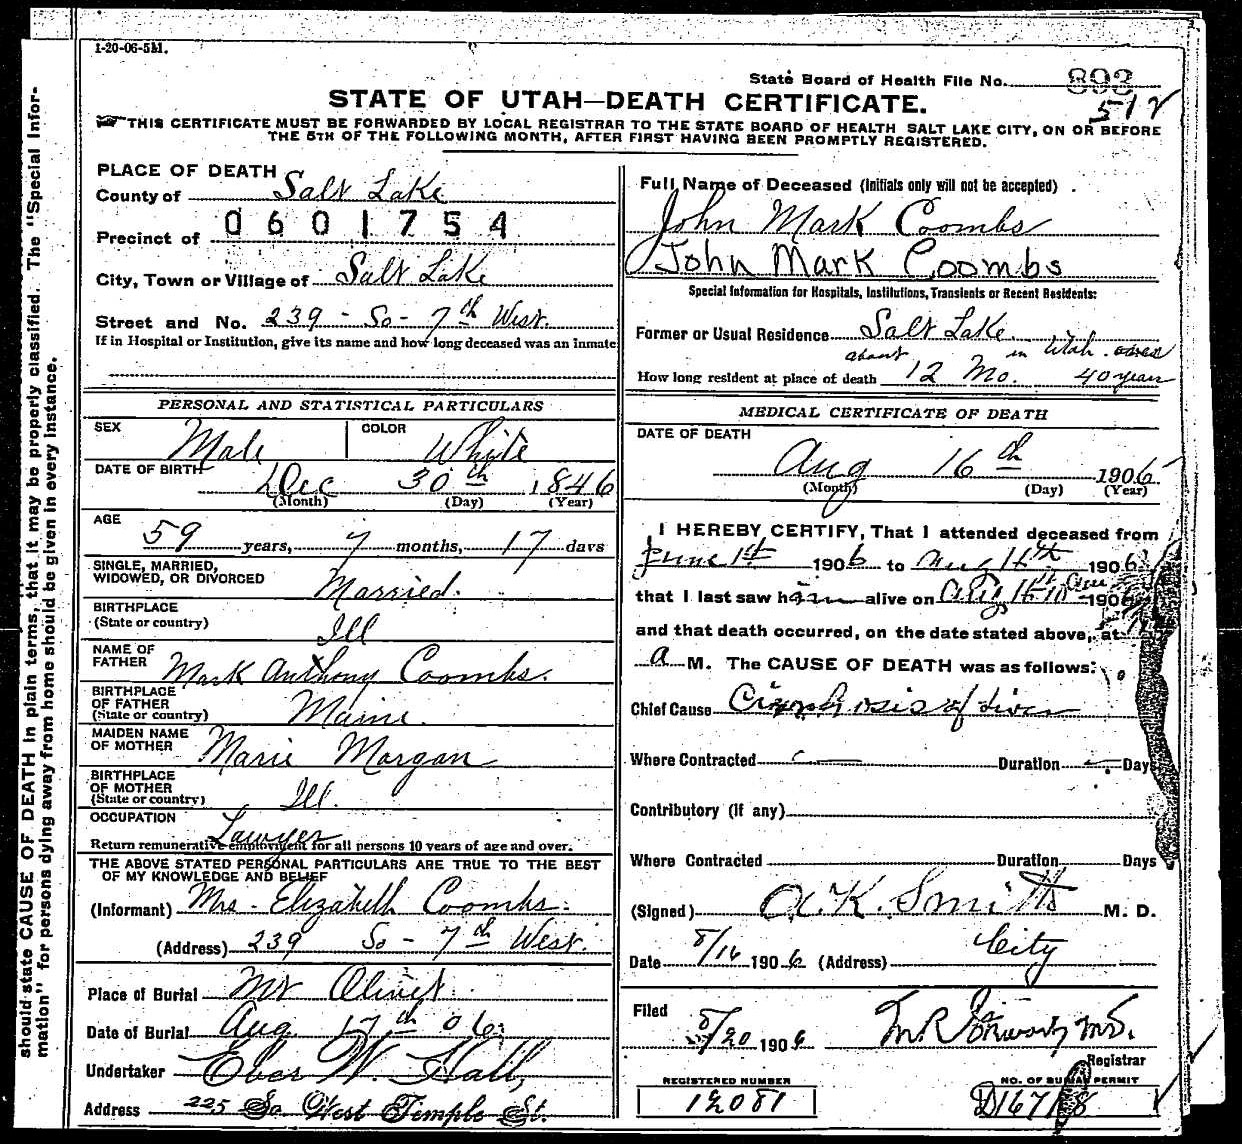 1-20-06-5M.
State Board of Health File No. 893
512
STATE OF UTAH—DEATH CERTIFICATE.
THIS CERTIFICATE MUST BE FORWARDED BY LOCAL REGISTRAR TO THE STATE BOARD OF HEALTH SALT LAKE CITY, ON OR BEFORE
THE 5TH OF THE FOLLOWING MONTH, AFTER FIRST HAVING BEEN PROMPTLY REGISTERED.
should state CAUSE OF DEATH in plain terms, that it may be properly classified. The "Special Infor-
mation" for persons dying away from home should be given in every instance.
PLACE OF DEATH
County of Salt Lake
Precinct of 0601754
City, Town or Village of Salt Lake
Street and No. 239 - So - 7th West.
If in Hospital or Institution, give its name and how long deceased was an inmate
PERSONAL AND STATISTICAL PARTICULARS
SEX Male COLOR White
DATE OF BIRTH Dec 30th 1846
(Month) (Day) (Year)
AGE
59 years, 7 months, 17 days
SINGLE, MARRIED,
WIDOWED, OR DIVORCED Married.
BIRTHPLACE
(State or country) Ill
NAME OF
FATHER Mark Anthony Coombs.
BIRTHPLACE
OF FATHER
(State or country) Maine.
MAIDEN NAME
OF MOTHER Marie Morgan
BIRTHPLACE
OF MOTHER
(State or country) Ill.
OCCUPATION Lawyer
Return remunerative employment for all persons 10 years of age and over.
THE ABOVE STATED PERSONAL PARTICULARS ARE TRUE TO THE BEST
OF MY KNOWLEDGE AND BELIEF
(Informant) Mrs. Elizabeth Coombs.
(Address) 239 So - 7th West.
Place of Burial Mt Olivet
Date of Burial Aug. 17th 06.
Undertaker Eber W. Hall,
Address 225 So West Temple St.
Full Name of Deceased (Initials only will not be accepted) .
John Mark Coombs
John Mark Coombs
Special Information for Hospitals, Institutions, Transients or Recent Residents:
Former or Usual Residence Salt Lake.
about in Utah over
How long resident at place of death 12 Mo. 40 years
MEDICAL CERTIFICATE OF DEATH
DATE OF DEATH
Aug 16th 1906
(Month) (Day) (Year)
I HEREBY CERTIFY, That I attended deceased from
June 1st 1906 to Aug 16th 1906
that I last saw him alive on Aug 1906
and that death occurred, on the date stated above, at
a M. The CAUSE OF DEATH was as follows:
Chief Cause Cirrhosis of Liver
Where Contracted Duration Days
Contributory (if any)
Where Contracted Duration Days
(Signed) A.K. Smith M. D.
Date 8/16 1906 (Address) City
Filed
8/20 1906 M.R.
Registrar
REGISTERED NUMBER
12081
NO. OF BURIAL PERMIT